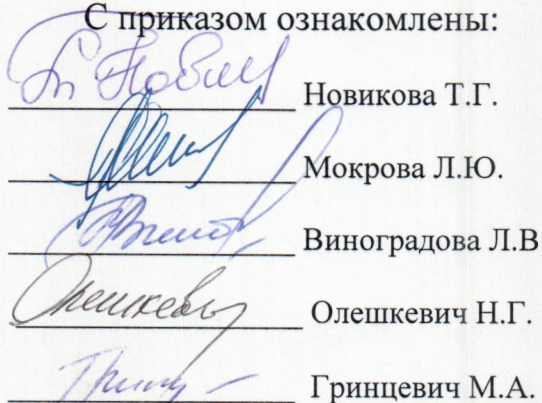 С приказом ознакомлены:
Новикова Т.Г.
Мокрова Л.Ю.
Виноградова Л.В
Олешкевич Н.Г.
Гринцевич М.А.